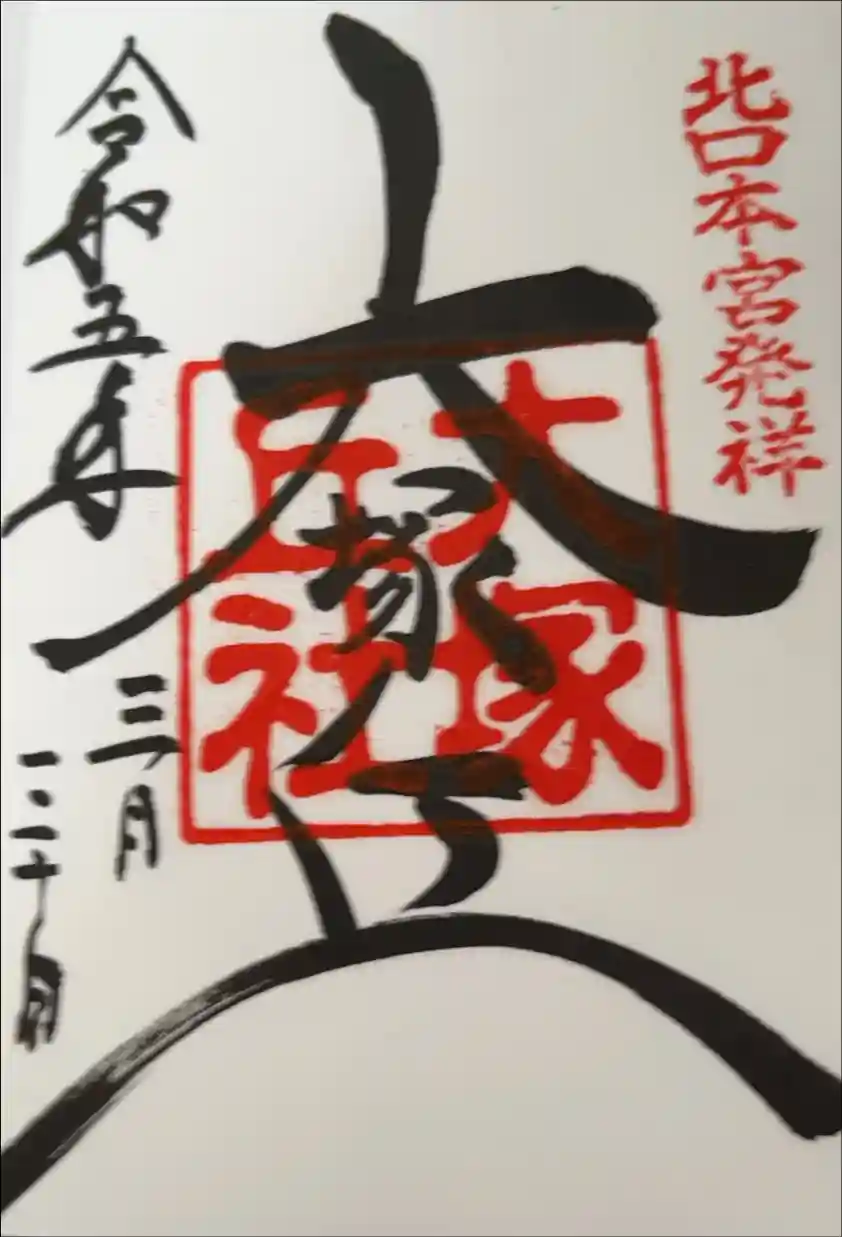 北口本宮発祥
大塚丘
大塚丘社
令和五年
三月
二十日